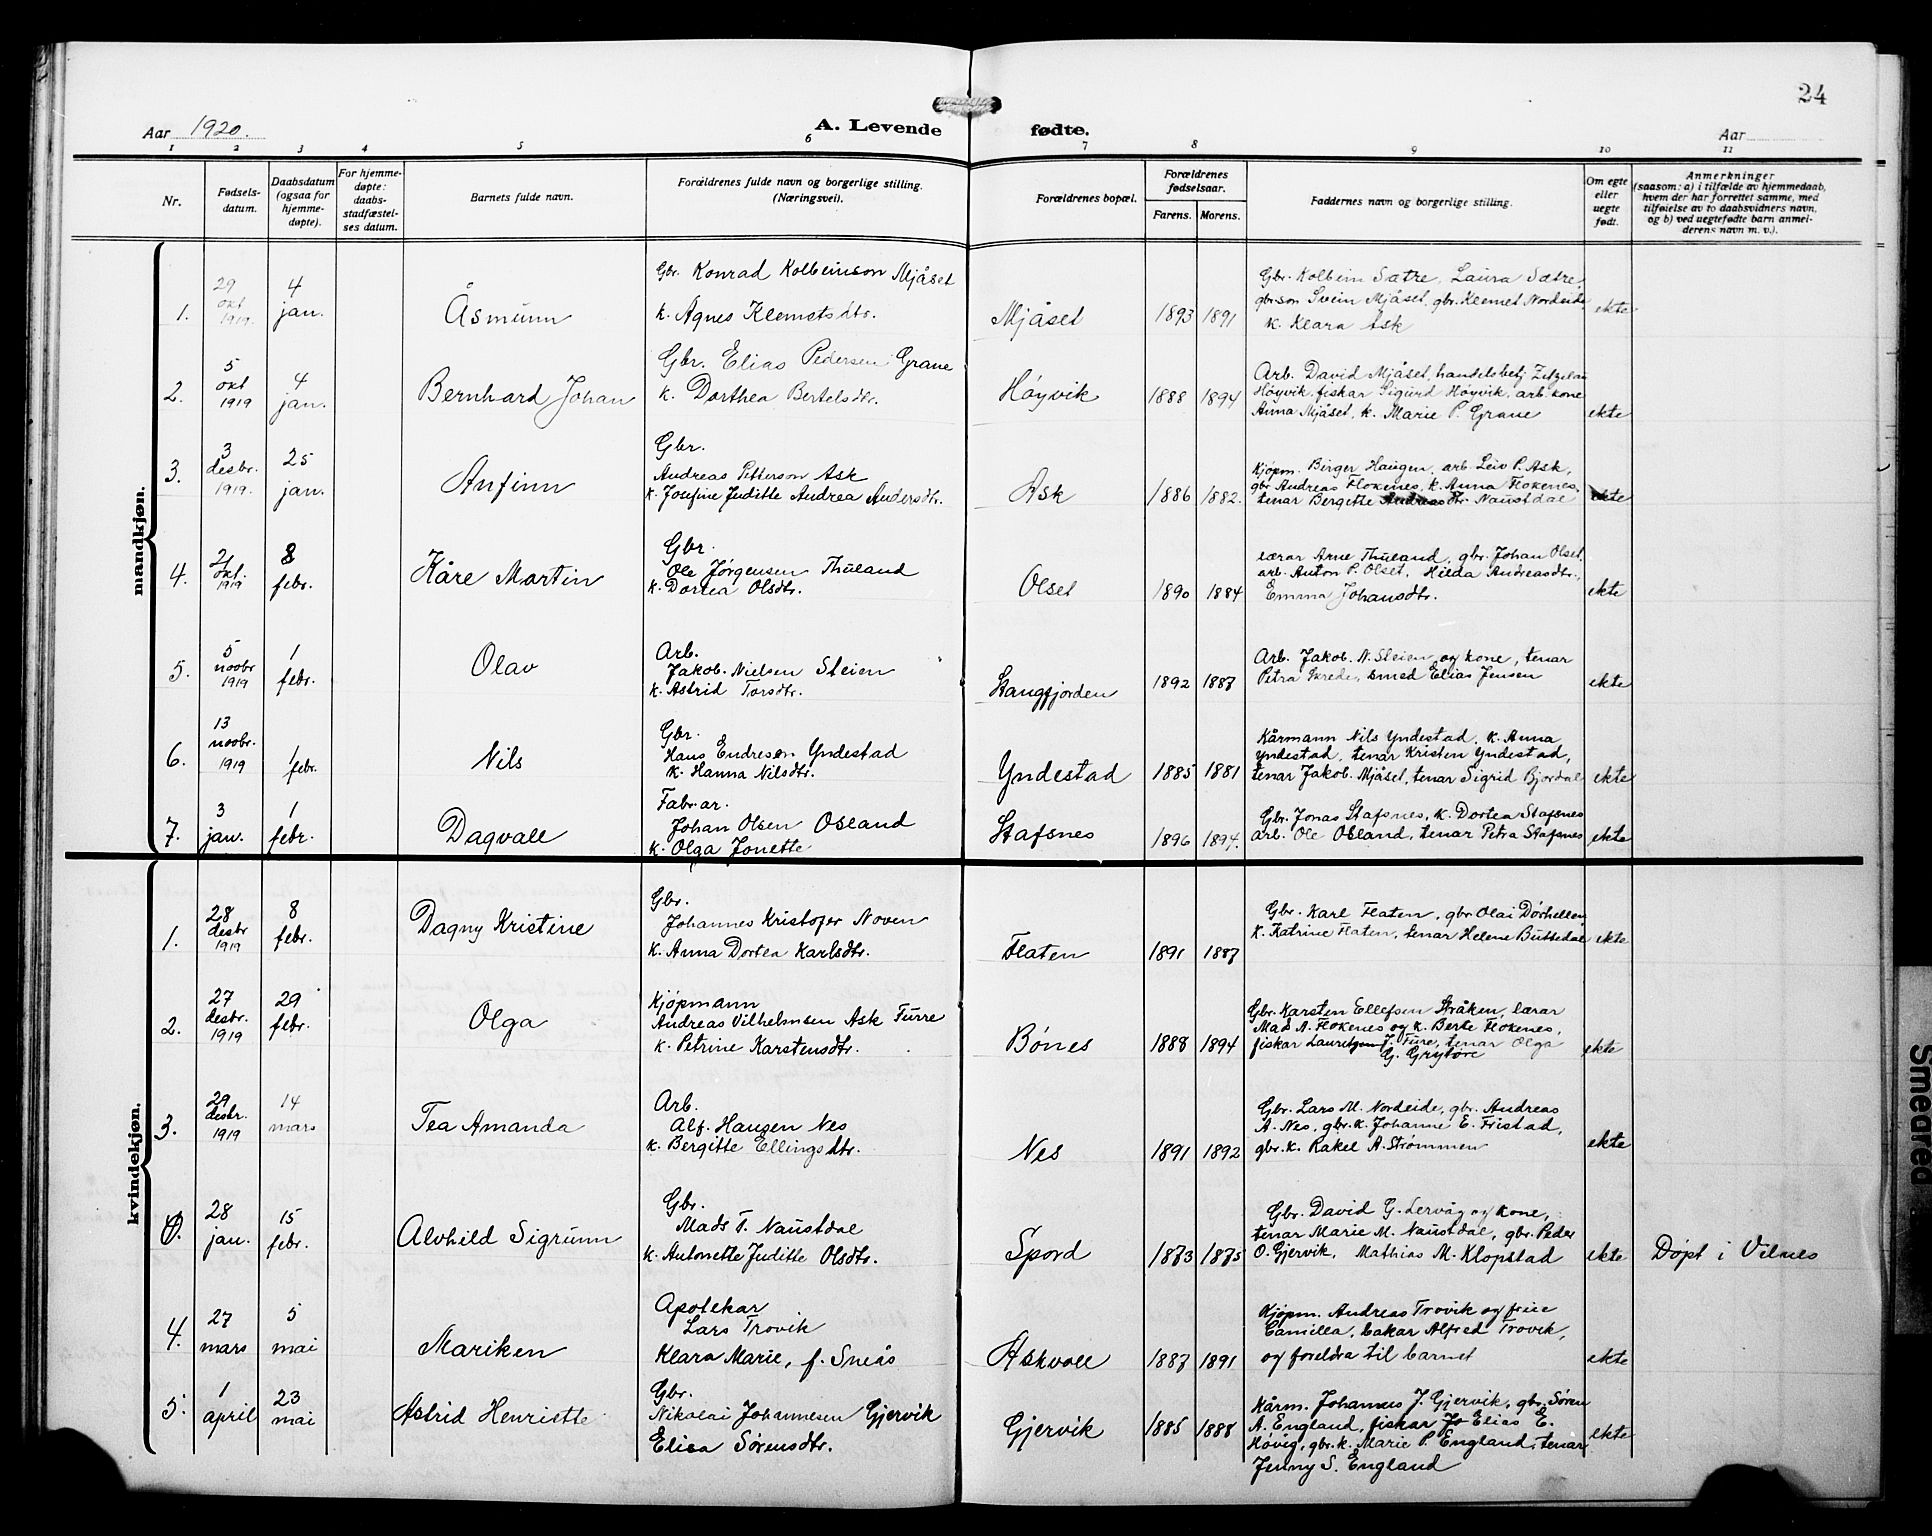 24
Aar 1920.
A. Levende fødte.
Aar
1 2 3 4 5 6 7 8 9 10 11
Nr.
Fødsels-
datum.
Daabsdatum
(ogsaa for
hjemme-
døpte).
For hjemme-
døpte:
daabs-
stadfæstel-
ses datum.
Barnets fulde navn.
Forældrenes fulde navn og borgerlige stilling.
(Næringsvei).
Forældrenes bopæl.
Forældrenes
fødselsaar.
Farens. Morens.
Faddernes navn og borgerlige stilling.
Om egte
eller
uegte
født.
Anmerkninger
(saasom: a) i tilfælde av hjemmedaab,
hvem der har forrettet samme, med
tilføielse av to daabsvidners navn,
og b) ved uegtefødte barn anmel-
derens navn m. v.).
mandkjøn.
1.
29
okt
1919.
4
jan.
Åsmunn
Gbr. Konrad Kolbeinson Mjåset
k. Agnes Klemetsdtr.
Mjåset
1893 1891
Gbr. Kolbein Sætre, Laura Sætre,
gbrson Svein Mjåset, gbr. Klemet Nordeide,
k. Klara Ask
ekte
2.
5
okt
1919
4
jan.
Bernhard Johan
Gbr. Elias Pedersen Grane
k. Dorthea Bertelsdtr.
Høyvik
1888 1894
Arb. David Mjåset, handelsbetj.
Høyvik, fiskar Sigurd Høyvik, arb. kone
Anna Mjåset, k. Marie P. Grane
ekte
3.
3
desbr.
1919.
25
jan.
Anfinn
Gbr.
Andreas Petterson Ask
k. Josefine Juditte Andrea Andersdtr.
Ask
1886 1882.
Kjøpm. Birger Haugen, arb. Leiv P. Ask,
gbr Andreas Flokenes, k. Anna Flokenes,
tenar Bergitte Andreasdtr. Naustdal
ekte
4.
21
okt.
1919
8
febr.
Kåre Martin
Gbr.
Ole Jørgensen Thuland
k. Dortea Olsdtr.
Olset
1890 1884
Lærar Arne Thuland, gbr. Johan Olset
arb. Anton P. Olset, Hilda Andreasdtr.,
Emma Johansdtr.
ekte
5.
5
novbr
1919
1
febr.
Olav
Arb.
Jakob. Nielsen Steien
k. Astrid Torsdtr.
Stangfjorden
1892 1887
Arb. Jakob. N. Steien og kone, tenar
Petra Skrede, smed Elias Jensen
ekte
6.
13
novbr.
1919
1
febr.
Nils
Gbr.
Hans Endreson Yndestad
k. Hanna Nilsdtr.
Yndestad
1885 1881
Kårmann Nils Yndestad, k. Anna
Yndestad, tenar Kristen Yndestad,
tenar Jakob. Mjåset, tenar Sigrid Bjordal
ekte
7.
3
jan.
1
febr.
Dagvall
Fabr.ar.
Johan Olsen Osland
k. Olga Jonette
Stafsnes
1896 1894.
Gbr. Jonas Stafsnes, k. Dortea Stafsnes
arb. Ole Osland, tenar Petra Stafsnes
ekte
kvindekjøn.
1.
28
desbr
1919
8
febr.
Dagny Kristine
Gbr.
Johannes Kristofer Noven
k. Anna Dortea Karlsdtr.
Flaten
1891 1887
Gbr. Karl Flaten, gbr Olai Dørhellen
k. Katrine Flaten, tenar Helene Buttedal
ekte
2.
27
desbr.
1919
29
febr.
Olga
Kjøpmann
Andreas Vilhelmsen Ask Furre
k. Petrine Karstensdtr.
Bønes
1888 1894
Gbr. Karsten Ellefsen Stråken, lærar
Mads A. Flokenes og k. Berte Flokenes,
fiskar J. Ture, tenar Olga
G. Grytøre
ekte
3.
29
desbr.
1919
14
mars
Tea Amanda
Arb.
Alf. Hansen Nes
k. Bergitte Ellingsdtr.
Nes
1891 1892
Gbr. Lars M. Nordeide, gbr. Andreas
A. Nes, gbr. k. Johanne E. Fristad,
gbr. k. Rakel A. Strømmen
ekte
0.
28
jan.
15
febr.
Alvhild Sigrunn
Gbr.
Mads T. Naustdal
k. Antonette Juditte Olsdtr.
Spord
1873 1875
Gbr. David G. Lervåg og kone,
tenar Marie M. Naustdal, gbr. Peder
O. Gjervik, Mathias M. Klopstad
ekte
Døpt i Vilnes
4.
27
mars
5
mai
Mariken
Apotekar
Lars Trovik
Klara Marie, f. Sneås
Askvoll
1887 1891
Kjøpm. Andreas Trovik og frue
Camilla, bakar Alfred Trovik,
og foreldra til barnet
ekte
5.
1
april
23
mai
Astrid Henriette
Gbr.
Nikolai Johannesen Gjervik
Elisa Sørensdtr.
Gjervik
1885 1888
Kårm. Johannes J. Gjervik, gbr. Søren
A. England, fiskar Jo Elias E.
Høvig, gbr. k. Marie P. England, tenar
Jenny S. England
ekte
Smearea